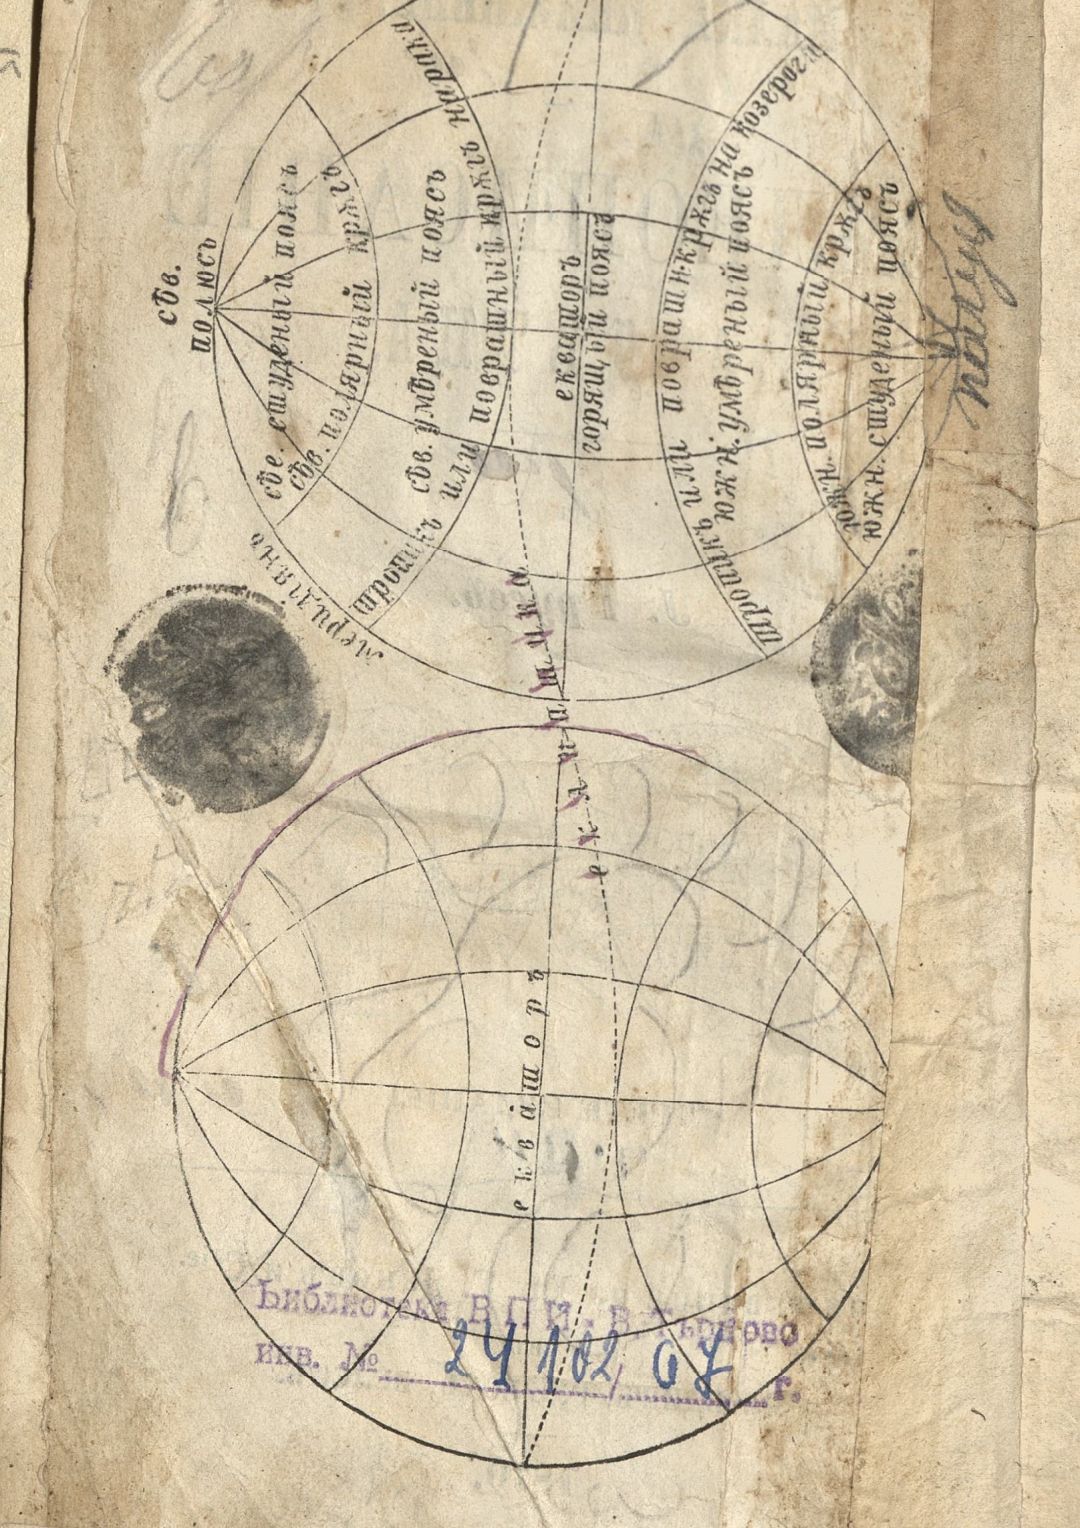 сѣв.
полюсъ
сѣв. студеный поясъ
сѣв. полярный крѫгъ
меридїянъ
сѣв. умѣреный поясъ
тропикъ или повратный крѫгъ на рака
екваторъ
горящый поясъ
тропикъ или повратн. крѫгъ на козерога
южн. умѣреный поясъ
южн. полярный крѫгъ
южн. студеный поясъ
еклиптика
екваторъ
Библиотека В П И . В. Търново
инв. № 24102/ 67 г.